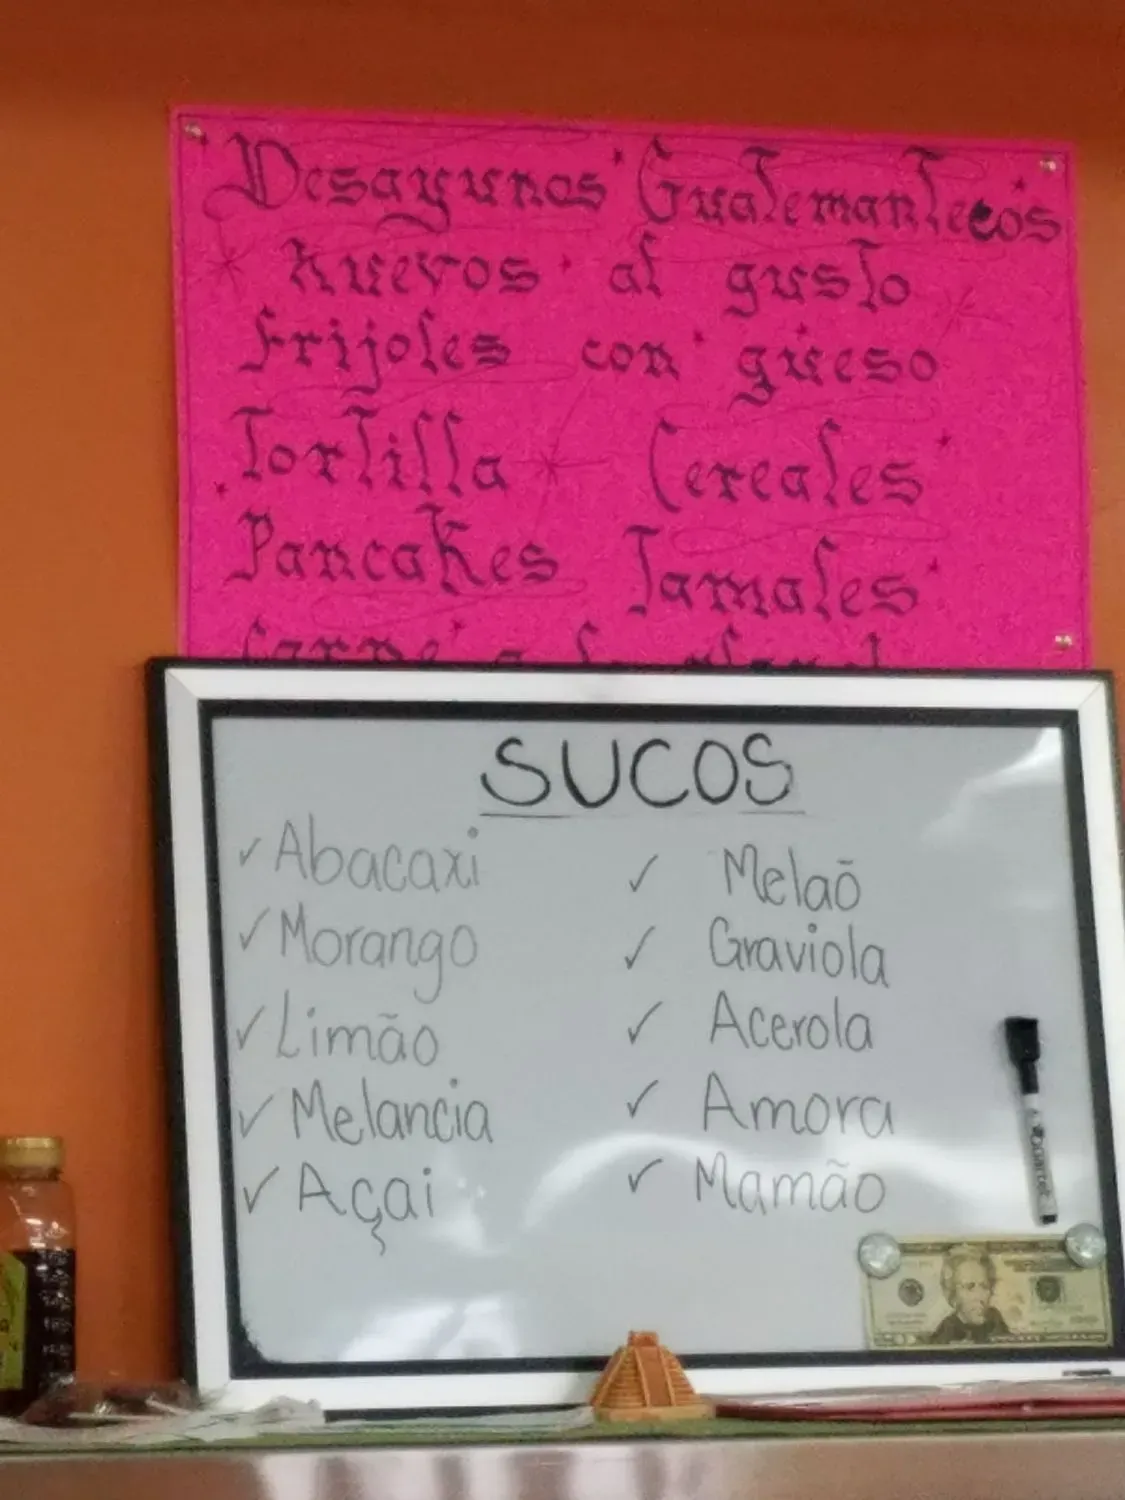 Desayunos Guatemantecos
huevos al gusto
frijoles con qüeso
Tortilla Cereales
Pancakes Tamales
Carne a la
SUCOS
✓ Abacaxi
✓ Morango
✓ Limão
✓ Melancia
✓ Açai
✓ Melaõ
✓ Graviola
✓ Acerola
✓ Amora
✓ Mamão